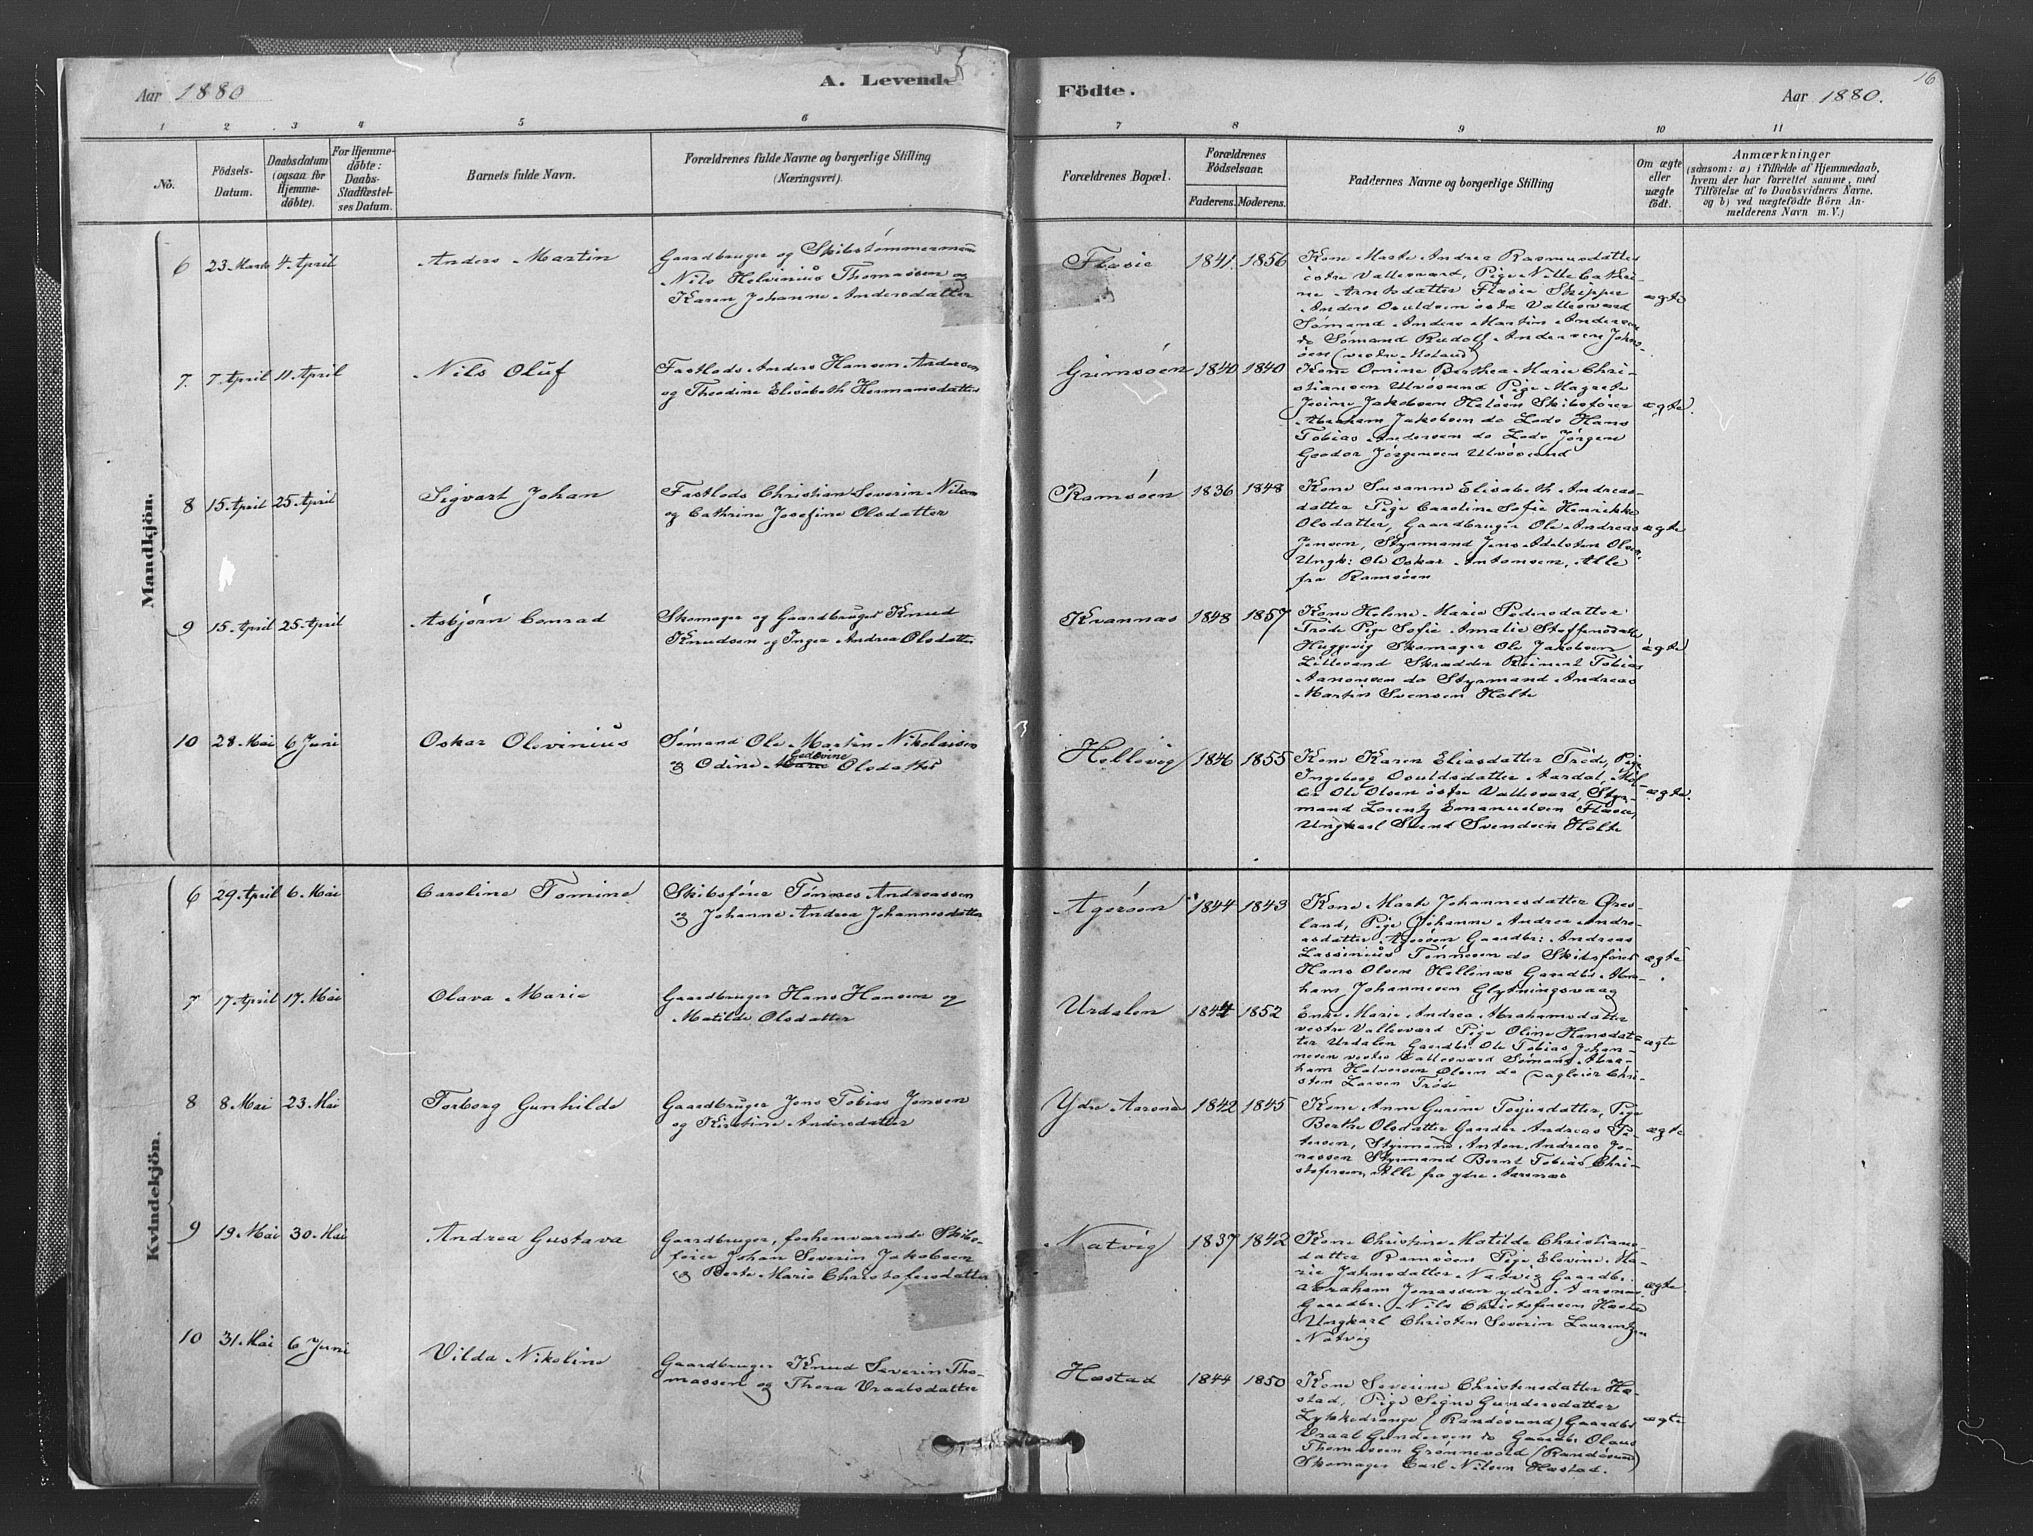 Aar 1880
A. Levende
Födte.
Aar 1880.
16
1 2 3 4 5 6 7 8 9 10 11
No.
Födsels-
Datum.
Daabsdatum
(ogsaa for
Hjemme-
döbte).
For Hjemme-
döbte:
Daabs-
Stadfæstel-
ses Datum.
Barnets fulde Navn.
Forældrenes fulde Navne og borgerlige Stilling
(Næringsvei).
Forældrenes Bopæl.
Forældrenes
Födselsaar.
Faderens. Moderens.
Faddernes Navne og borgerlige Stilling
Om ægte
eller
uægte
födt.
Anmærkninger
(saasom: a) i Tilfælde af Hjemmedaab,
hvem der har forrettet samme, med
Tilföielse af to Daabsvidners Navne,
og b) ved uægtefödte Börn An-
melderens Navn m. V.)
Mandkjön.
6 23 Marts 4 April Anders Martin
Gaardbruger og Skibstømmermann
Nils Helvinius Thomassen og
Karen Johanne Andersdatter
Flæsie 1841 1856
Kone Marte Andrea Rasmusdatter
Vallesværd, Pige Nille Cathri-
ne Arntsdatter Flæsie Skipper
Anders Osuldsen østre Vallesværd
Sømand Anders Martin Andersen
do Sømand Rudolf Andersen
ægte
7 7 April 11 April Nils Oluf
Fastlods Anders Hansen Andersen
og Theodine Elisabeth Hermansdatter
Grimsøen 1840 1840
Kone Omine Berthea Marie Chri-
stiansen Ulvøsund Pige Magrete
Josine Jakobsen Heløen Skibsfører
Abraham Jakobsen do Lods Hans
Tobias Andersen do Lods Jörgen
Jörgensen Ulvøsund
ægte
8 15 April 25 April Sigvart Johan
Fastlods Christian Severin Nilsen
og Cathrine Josefine Olsdatter
Ramsöen 1836 1848
Kone Susanne Elisabeth Andreas-
datter Pige Caroline Sofie Henrikke
Olsdatter, Gaardbruger Ole Andreas
Jensen, Styrmand Jens Adelsten Olsen
Ungk: Ole Oskar Antonsen, Alle
fra Ramsöen
ægte
9 15 April 25 April Asbjørn Conrad
Skomager og Gaardbruger Knud
Knudsen og Inger Andrea Olsdatter
Kvannes 1848 1857
Kone Helene Marie Pedersdatter
Trøde Pige Sofie Amalie Steffensdatt
Huggevig Skomager Ole Jakobsen
Lillesand Skrædder Reinert Tobias
Aanonsen do Styrmand Andreas
Martin Svensen Holte
ægte
10 28 Mai 6 Juni Oskar Olevinius
Sømand Ole Martin Nikolaisen
og Odine Marie Olsdatter
Hellevig 1846 1855
Kone Karen Eliasdatter Trøde, Pige
Ingeborg Osuldsdatter Aardal, Møl-
ler Ole Olsen østre Vallesværd, Styr-
mand Lorentz Emanuelsen Flæsie,
Ungkarl Svend Svendsen Holte
ægte.
Kvindekjön.
6 29 April 6 Mai Caroline Tomine
Skibsfører Tønnes Andreassen
og Johanne Andrea Johannesdatter
Agerøen 1844 1843
Kone Marte Johannesdatter Øres-
land, Pige Johanne Andrea Andre-
asdatter Agerøen Gaardbr: Andreas
Lassenius Tønnesen do Skibsfører
Hans Olsen Hellenæs Gaardbr Abra-
ham Johannesen Glytningsvaag
ægte
7 17 April 17 Mai Olava Marie
Gaardbruger Hans Hansen og
Matilde Olsdatter
Urdalen 1844 1852
Enke Marie Andrea Abrahamsdatter
vestre Vallesværd Pige Oline Hansdat-
ter Urdalen Gaardbr. Ole Tobias Johan-
nesen vestre Vallesværd Sømand Abra-
ham Halvorsen Olsen do Dagleier Chri-
sten Larsen Trøde
ægte
8 8 Mai 23 Mai Torborg Gunhilde
Gaardbruger Jens Tobias Jensen
og Kirstine Andersdatter
Ydre Aarsnæs 1842 1845
Kone Anne Gurine Tojusdatter, Pige
Berthe Olsdatter Gaardbr Andreas Pe-
tersen, Styrmand Anton Andreas Jo-
nassen Styrmand Bernt Tobias Chri-
stofersen, Alle fra ydre Aarsnæs
ægte
9 19 Mai 30 Mai Andrea Gustava
Gaardbruger, forhenværende Skibs-
fører Johan Severin Jakobsen
og Berte Marie Christofersdatter
Natvig 1837 1842
Kone Christine Matilde Christians-
datter Ramsöen Pige Elevine Ma-
rie Jahnsdatter Natvig Gaardbr.
Abraham Jonassen ydre Aarsnæs
Gaardbr. Nils Christofersen Hæstad
Ungkarl Christen Severin Laurentzen
Natvig
ægte
10 31 Mai 6 Juni Vilda Nikoline
Gaardbruger Knud Severin Tho-
massen og Thora Vraalsdatter
Hæstad 1844 1850
Kone Severine Christensdatter Hæ-
stad, Pige Signe Gundersdatter
Lykkedrange (Randøsund) Gaardbr
Vraal Gundersen do Gaardbr Olaus
Thomassen Grønnevold (Randøsund)
Skomager Carl Nilsen Hæstad.
ægte